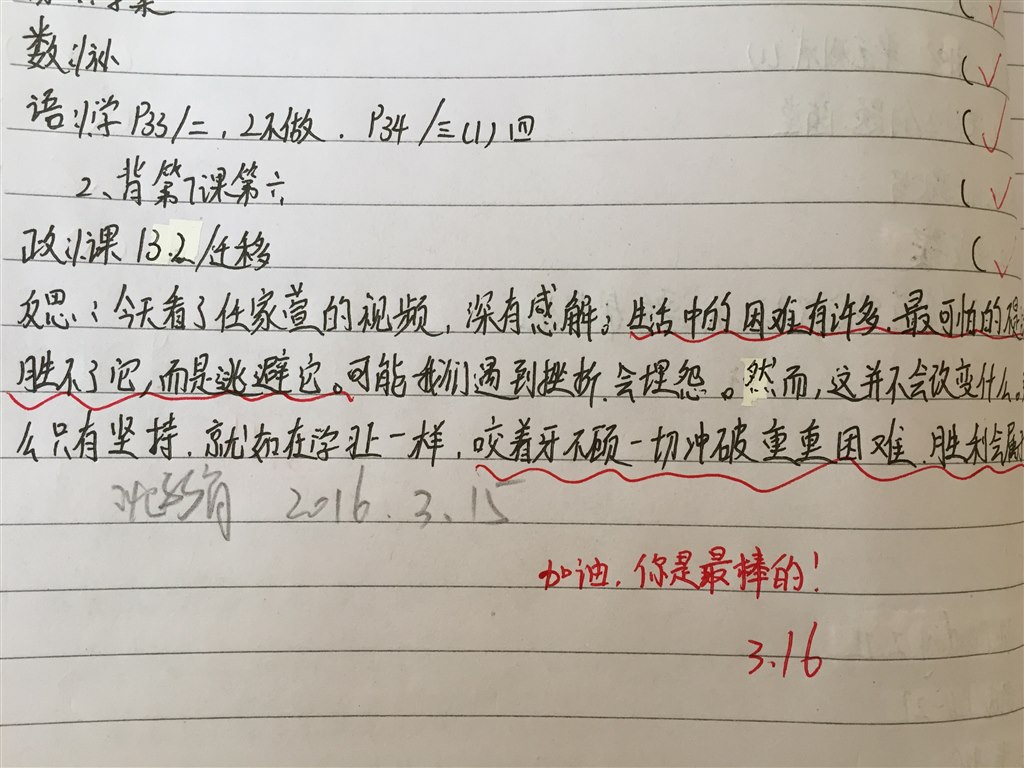 数:补
语:学P33/二,2不做. P34/三(1)四
2、背第7课第六
政:课13.2/迁移
反思:今天看了任家萱的视频,深有感解:生活中的困难有许多.最可怕的
胜不了它,而是逃避它。可能我们遇到挫折.会埋怨。然而,这并不会改变什么。
么只有坚持.就如在学业一样,咬着牙不顾一切冲破重重困难.胜利会属
2016.3.15
加油,你是最棒的!
3.16